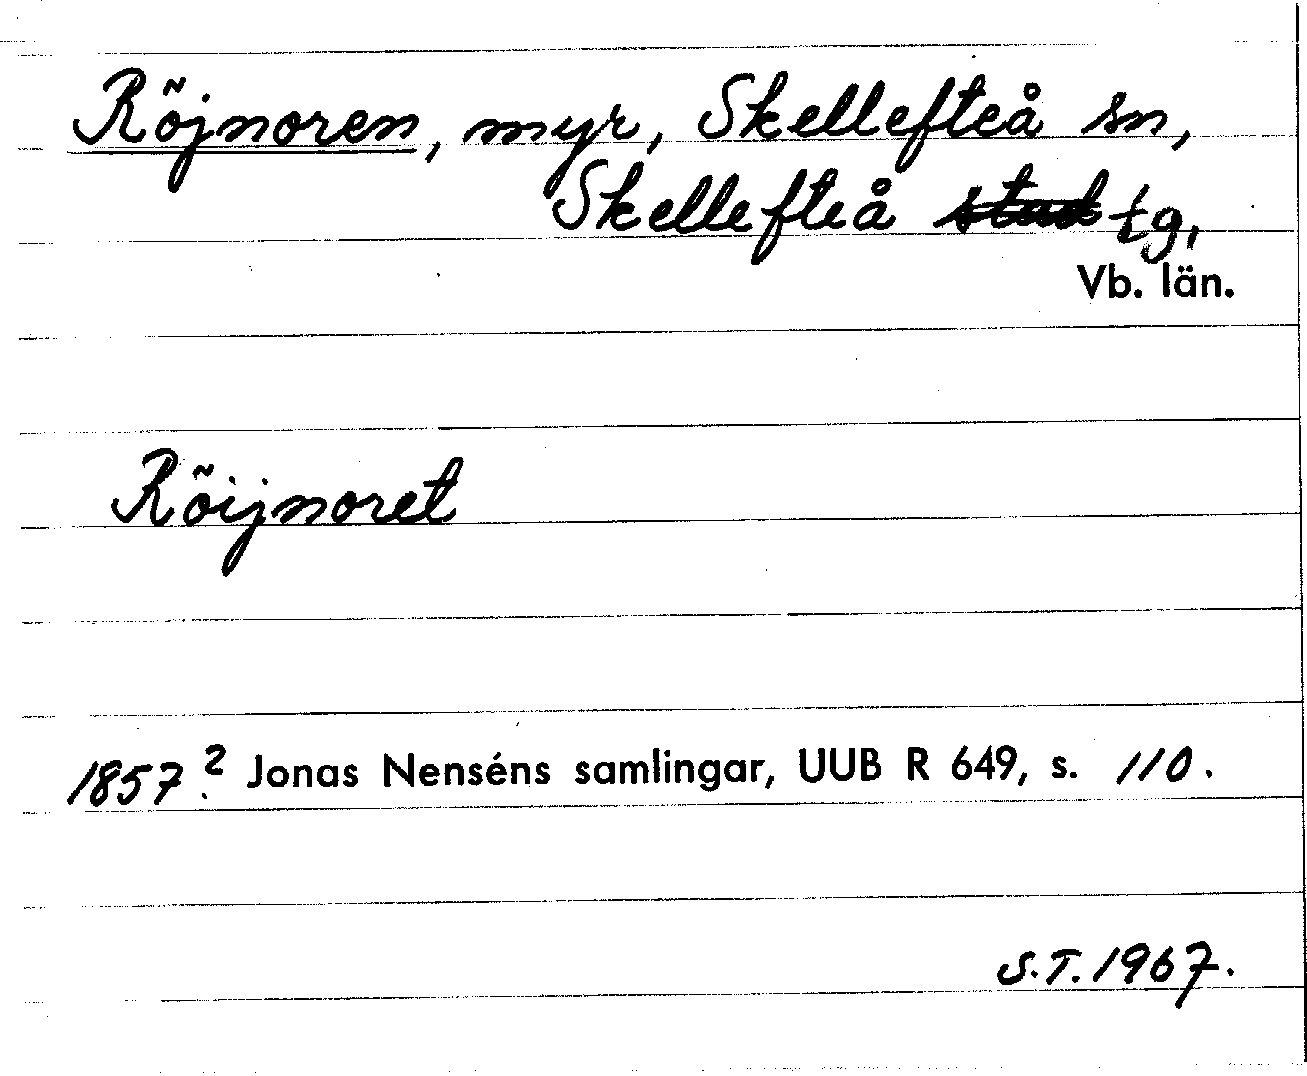 Röjnoren, myr, Skellefteå sn,
Skellefteå stad tg,
Vb. län.
Röijnoret
1857? Jonas Nenséns samlingar, UUB R 649, s. 110.
S.T. 1967.